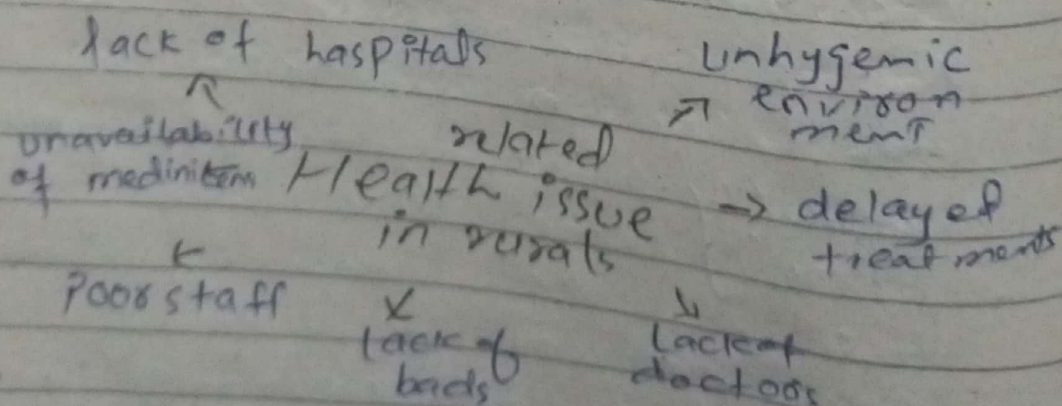 lack of haspitals
unhygemic
environ
ment
unavailability
of medinitem
related
Health issue
in rurals
delay of
treatments
Poor staff
lack of
beds
Lack of
doctoos